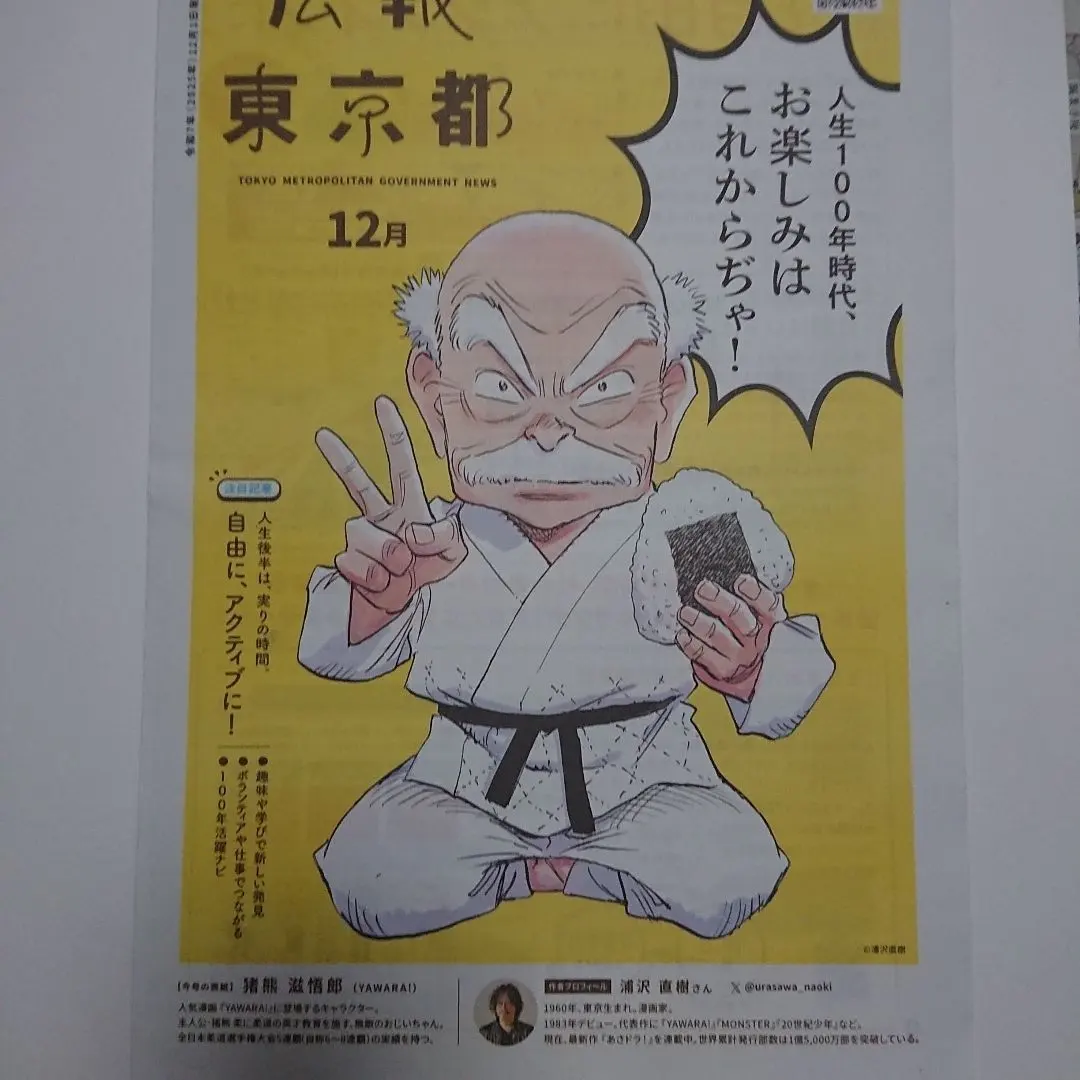 広報
東京都
TOKYO METROPOLITAN GOVERNMENT NEWS
12月
人生100年時代、
お楽しみは
これからぢゃ！
注目記事
人生後半は、実りの時間。
自由に、アクティブに！
●趣味や学びで新しい発見
●ボランティアや仕事でつながる
●100年活躍ナビ
©浦沢直樹
【今号の表紙】 猪熊 滋悟郎 (YAWARA!)
人気漫画『YAWARA!』に登場するキャラクター。
主人公・猪熊 柔に柔道の英才教育を施す、無敵のおじいちゃん。
全日本柔道選手権大会5連覇(自称6〜8連覇)の実績を持つ。
作者プロフィール 浦沢 直樹さん X @urasawa_naoki
1960年、東京生まれ。漫画家。
1983年デビュー。代表作に『YAWARA!』『MONSTER』『20世紀少年』など。
現在、最新作『あさドラ！』を連載中。世界累計発行部数は1億5,000万部を突破している。